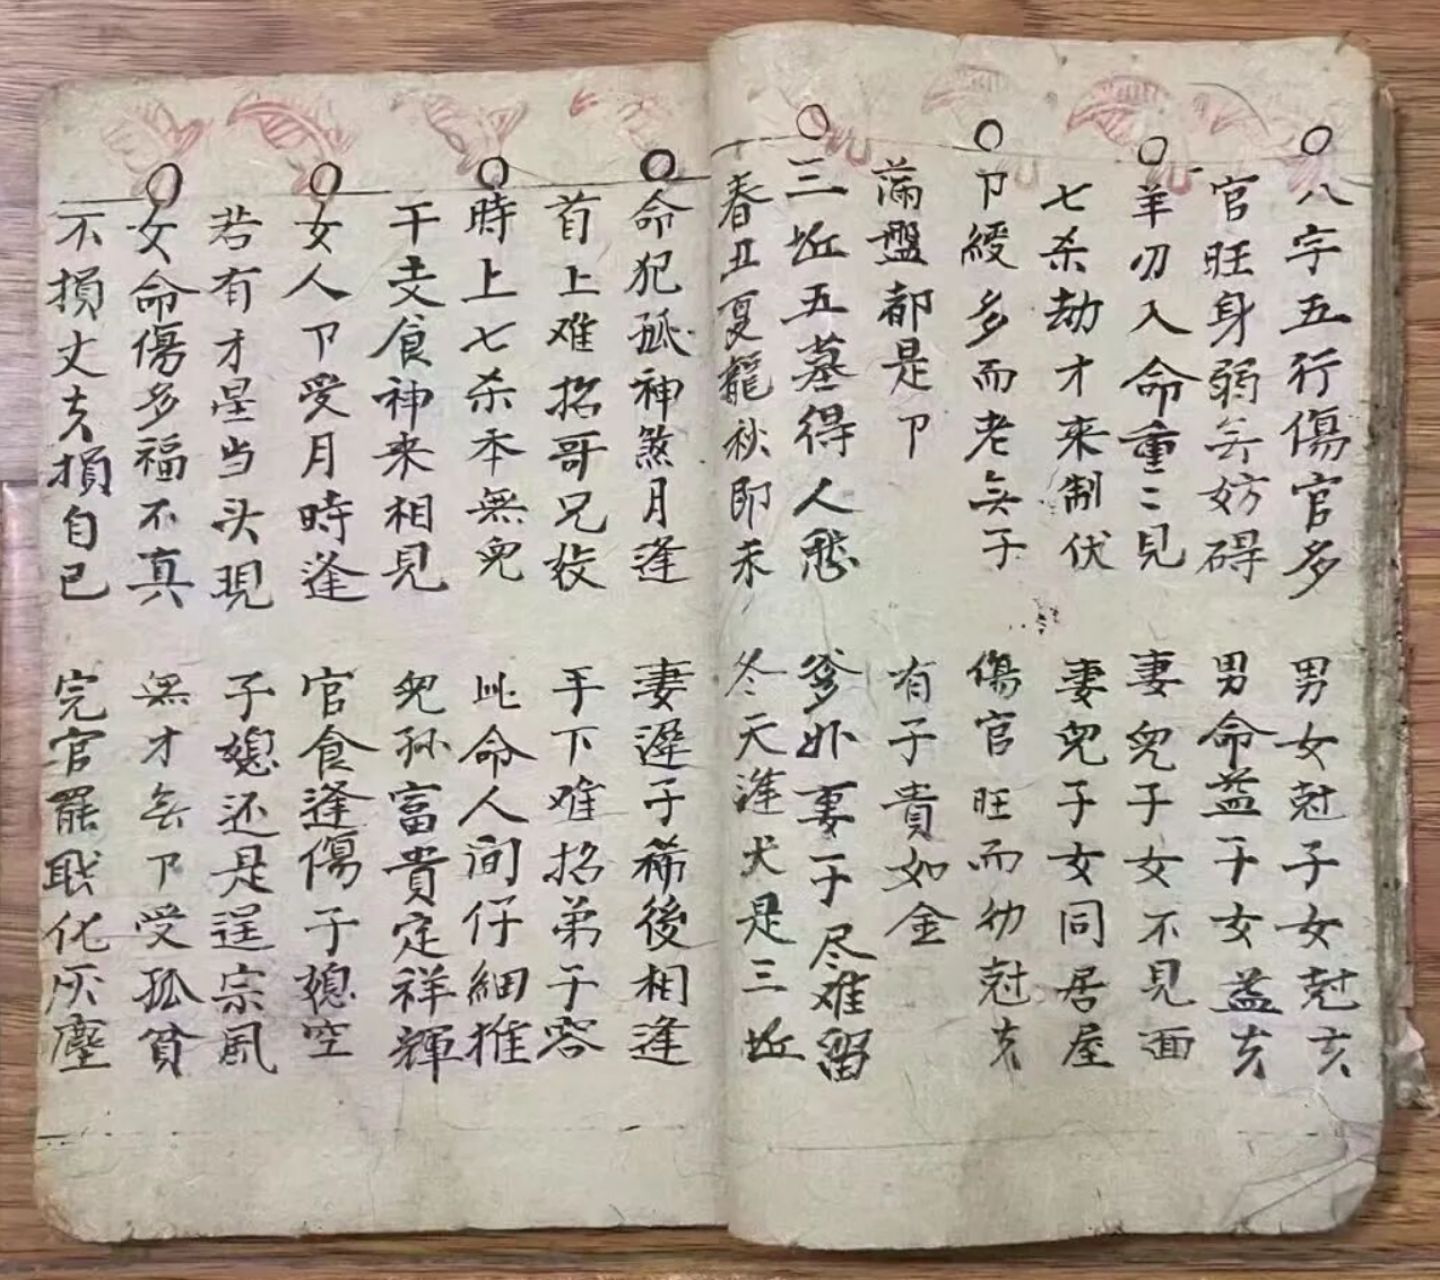 八字五行傷官多 男女尅子女尅夫
官旺身弱無妨碍 男命益子女益夫
羊刃入命重二見 妻兒子女不見面
七杀劫才来制伏 妻兒子女同居屋
卩綬多而老無子 傷官旺而幼尅夫
滿盤都是卩 有子貴如金
三坵五墓得人愁 爹外妻子尽难留
春丑夏龍秋即未 冬天逢犬是三坵
命犯孤神煞月逢 妻遲子稀後相逢
首上难招哥兄 手下难招弟子容
時上七杀本無兒 此命人间仔細推
干支食神来相見 兒孙富貴定祥輝
女人卩受月時逢 官食逢傷子媳空
若有才星当头現 子媳还是逞宗風
女命傷多福不真 無才無卩受孤貧
不損丈夫損自己 完官罷职化灰塵